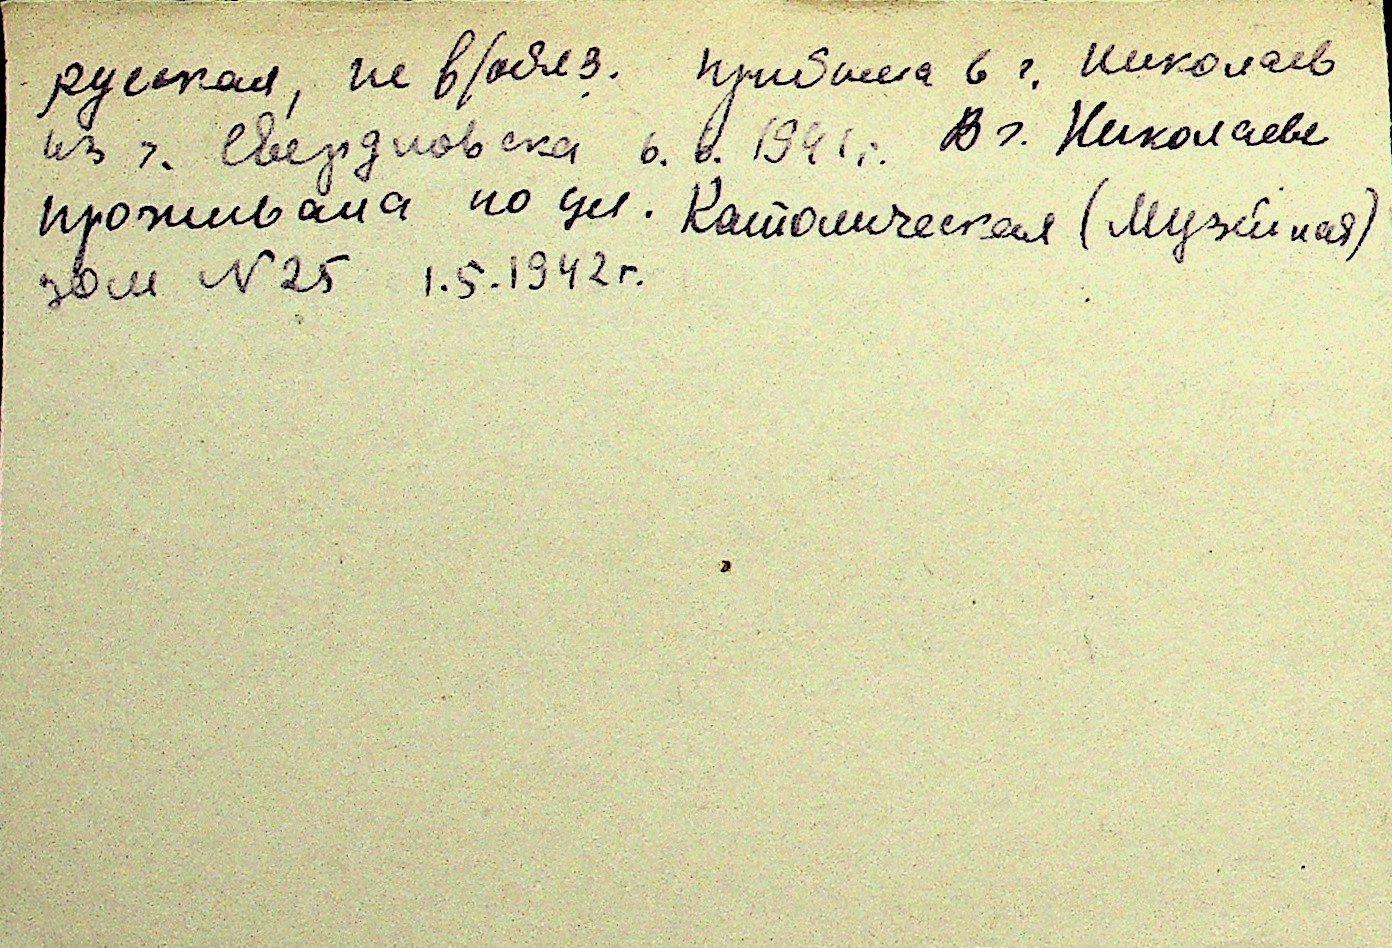 русская, не в/обяз. прибыла в г. Николаев
из г. Свердловска 6.6.1941г. В г. Николаеве
проживала по ул. Католическая (Музейная)
дом N 25 1.5.1942г.